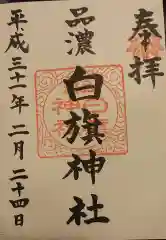 奉拝
品濃
白旗神社
平成三十一年二月二十四日